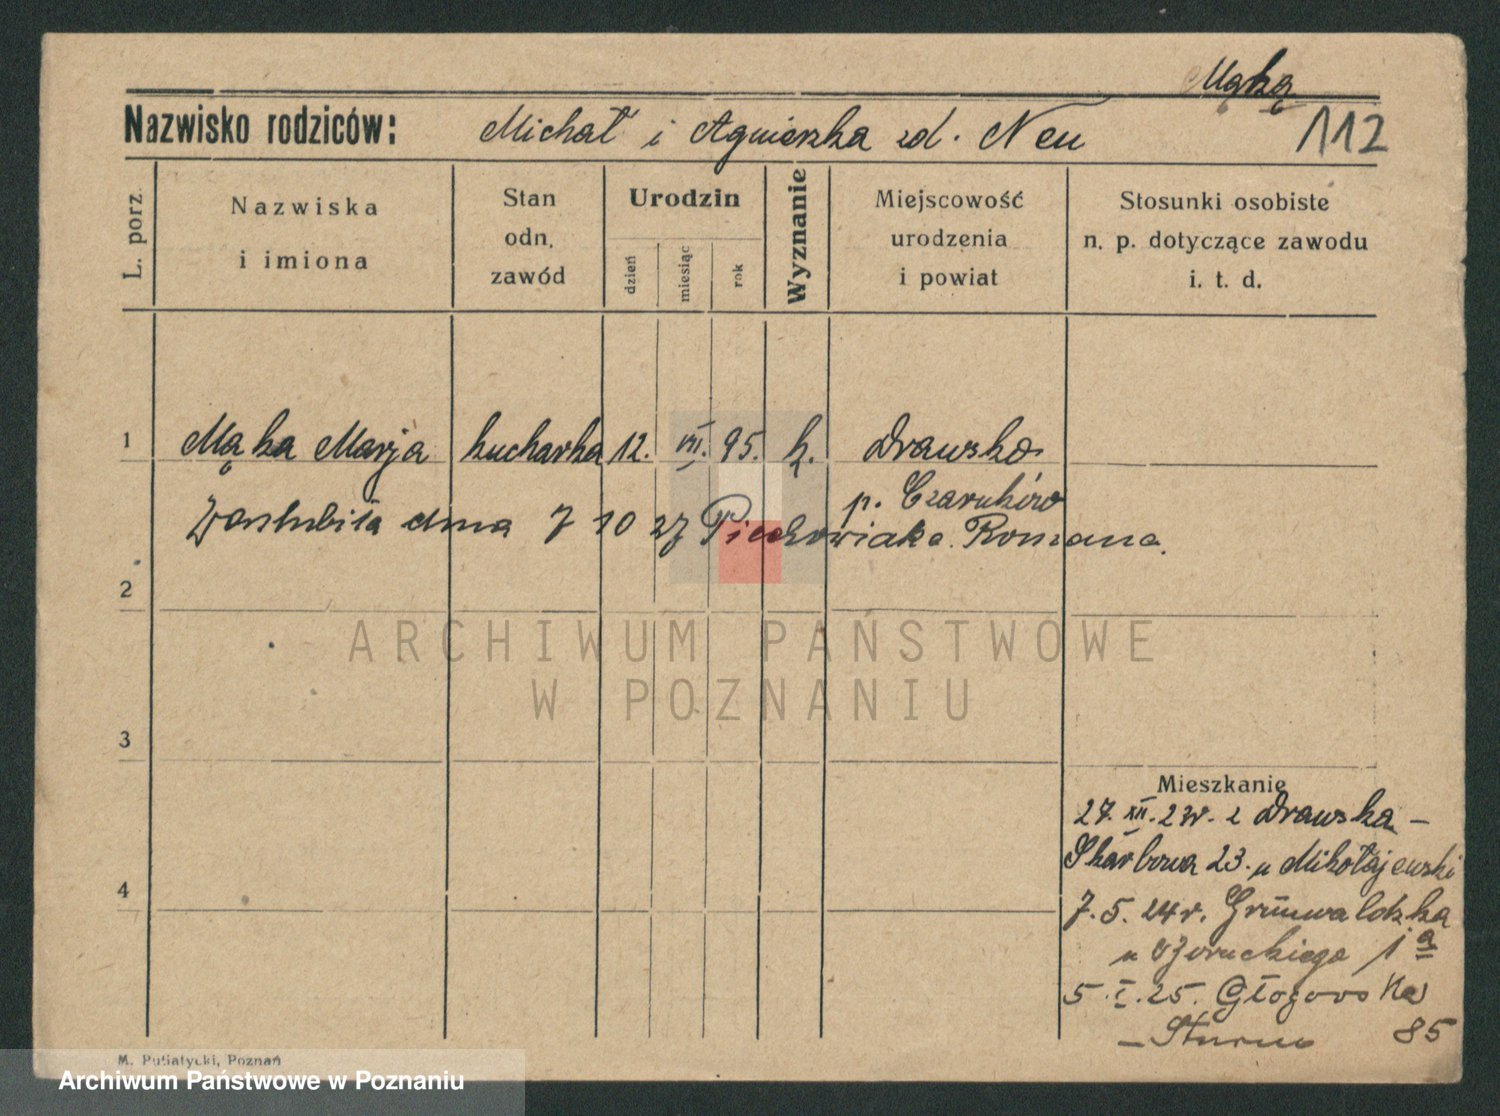 Mąka
Nazwisko rodziców: Michał i Agnieszka zd. Neu
112
L. porz.
Nazwiska
i imiona
Stan
odn.
zawód
Urodzin
dzień
miesiąc
rok
Wyznanie
Miejscowość
urodzenia
i powiat
Stosunki osobiste
n. p. dotyczące zawodu
i. t. d.
1 Mąka Marja kucharka 12. VII. 95. k. Drawsko
p. Czarnków
Zaślubiła dnia 7 10 27 Piechowiaka Romana.
2
ARCHIWUM PAŃSTWOWE
W POZNANIU
3
Mieszkanie
27. XII. 23r. z Drawska –
Skarbowa 23. u Mikołajewski
4
7. 5. 24r. Grunwaldzka
u 1 a
5. I. 25. Głogowska
– Sturm 85
M. Putiatycki, Poznań
Archiwum Państwowe w Poznaniu